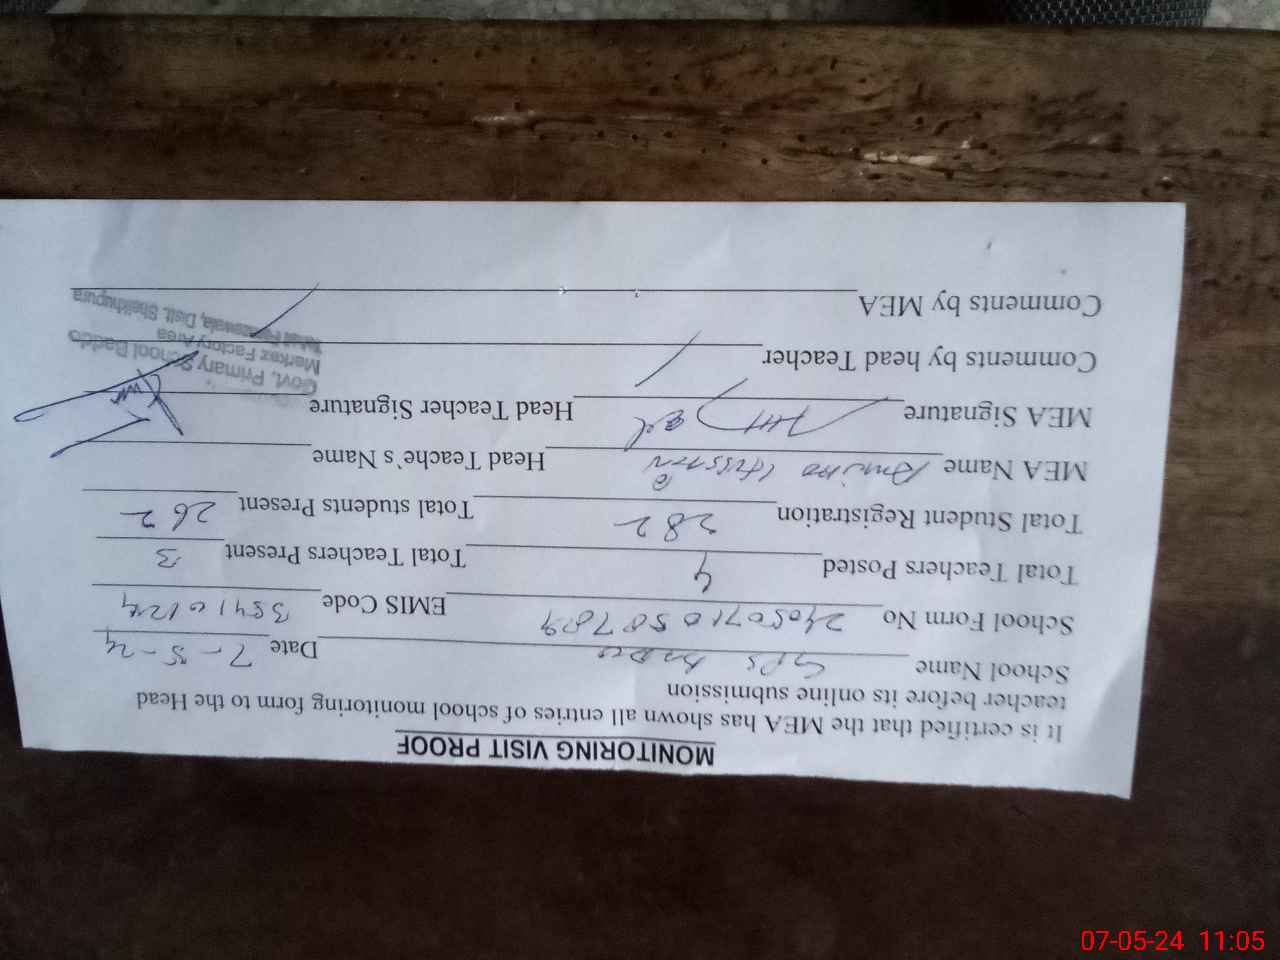 MONITORING VISIT PROOF
It is certified that the MEA has shown all entries of school monitoring form to the Head
teacher before its online submission
School Name GPS Baddo Date 7-5-24
School Form No 2405071050789 EMIS Code 35410124
Total Teachers Posted 4 Total Teachers Present 3
Total Student Registration 282 Total students Present 262
MEA Name Hussain Head Teache`s Name
MEA Signature Head Teacher Signature
Comments by head Teacher
Comments by MEA
Govt. Primary School Baddo
Markaz Factory Area
Tehsil Ferozewala, Distt. Sheikhupura
07-05-24 11:05